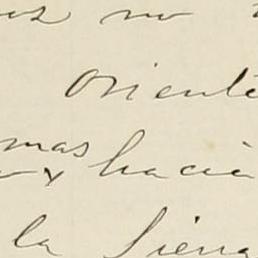 no
Oriente
mas
hacia
la Sierra